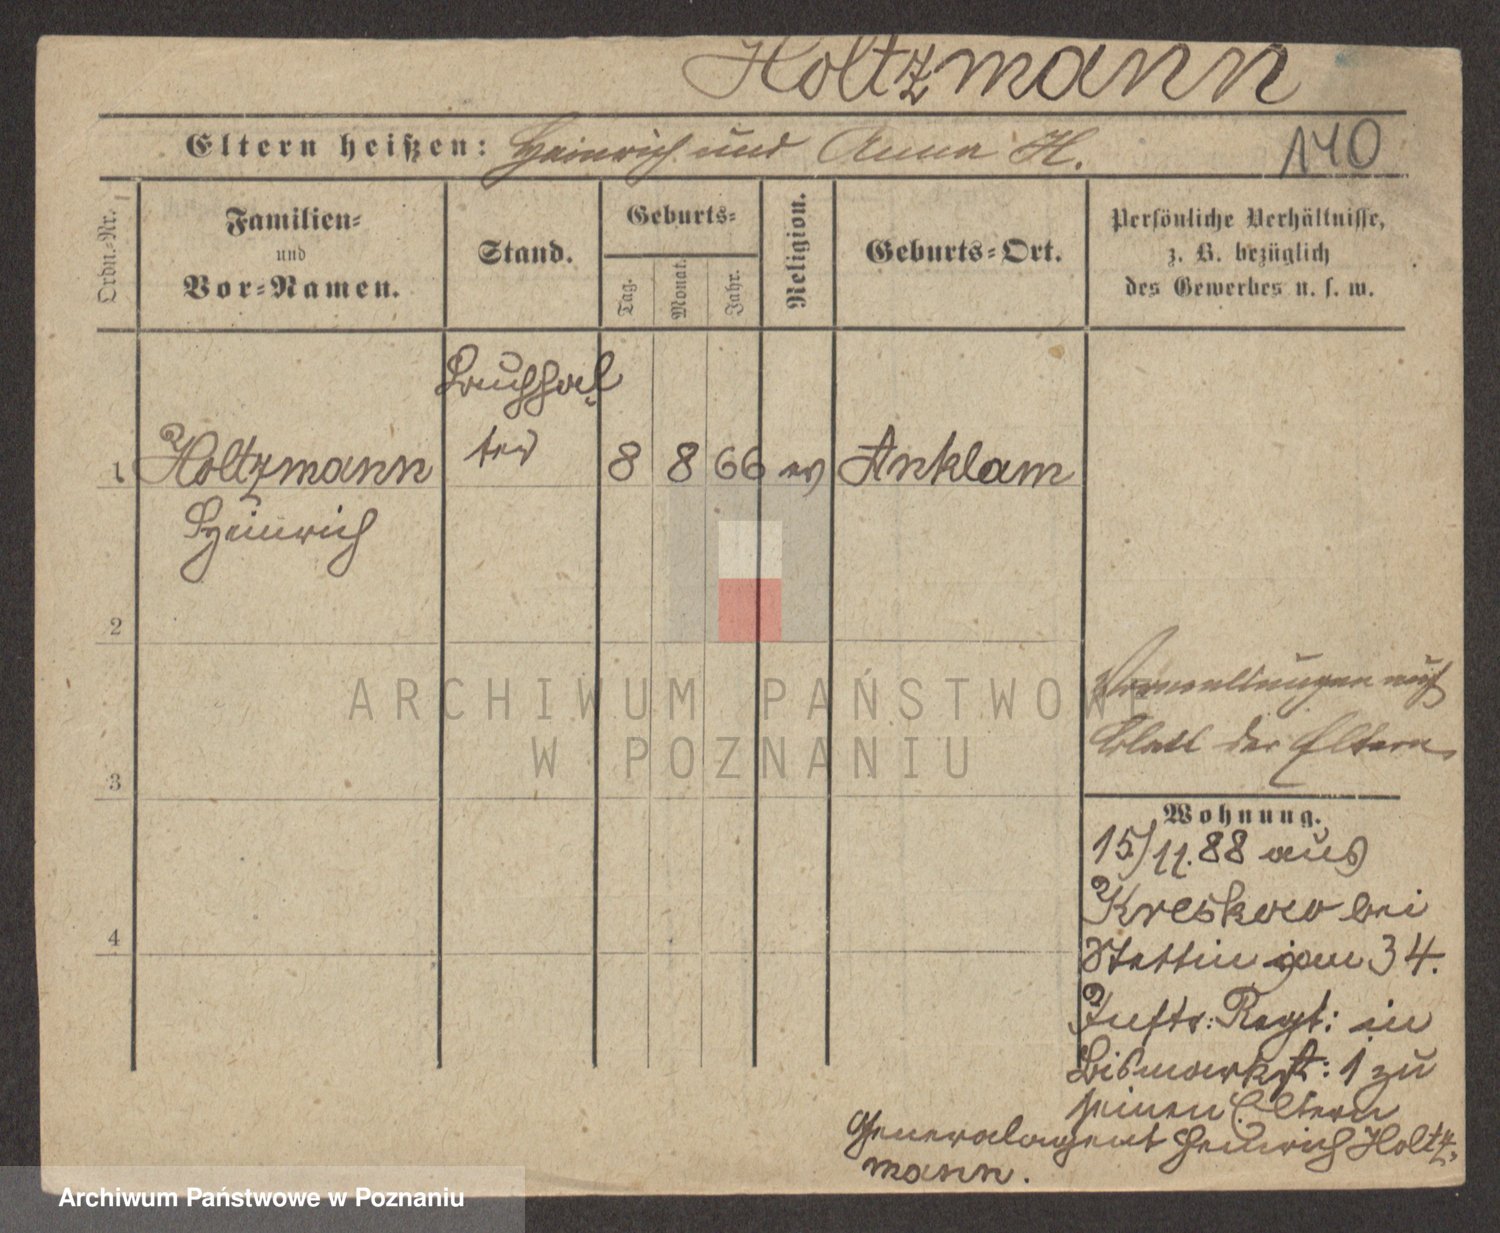 Holtzmann
Eltern heißen: Heinrich und Anna H.
140
Ordn.-Nr.
Familien-
und
Vor-Namen.
Stand.
Geburts-
Tag.
Monat.
Jahr.
Religion.
Geburts-Ort.
Persönliche Verhältnisse,
z. B. bezüglich
des Gewerbes u. s. w.
Buchhal-
ter
1 Holtzmann 8 8 66 ev Anklam
Heinrich
2
Bemerkungen auf
Blatt der Eltern
3
Wohnung.
15/11. 88 aus
Kreskow bei
Stettin vom 34.
4
Inftr: Regt: in
Bismarkst: 1 zu
seinen Eltern
Generalagent Heinrich Holtz-
mann.
ARCHIWUM PAŃSTWOWE
W POZNANIU
Archiwum Państwowe w Poznaniu